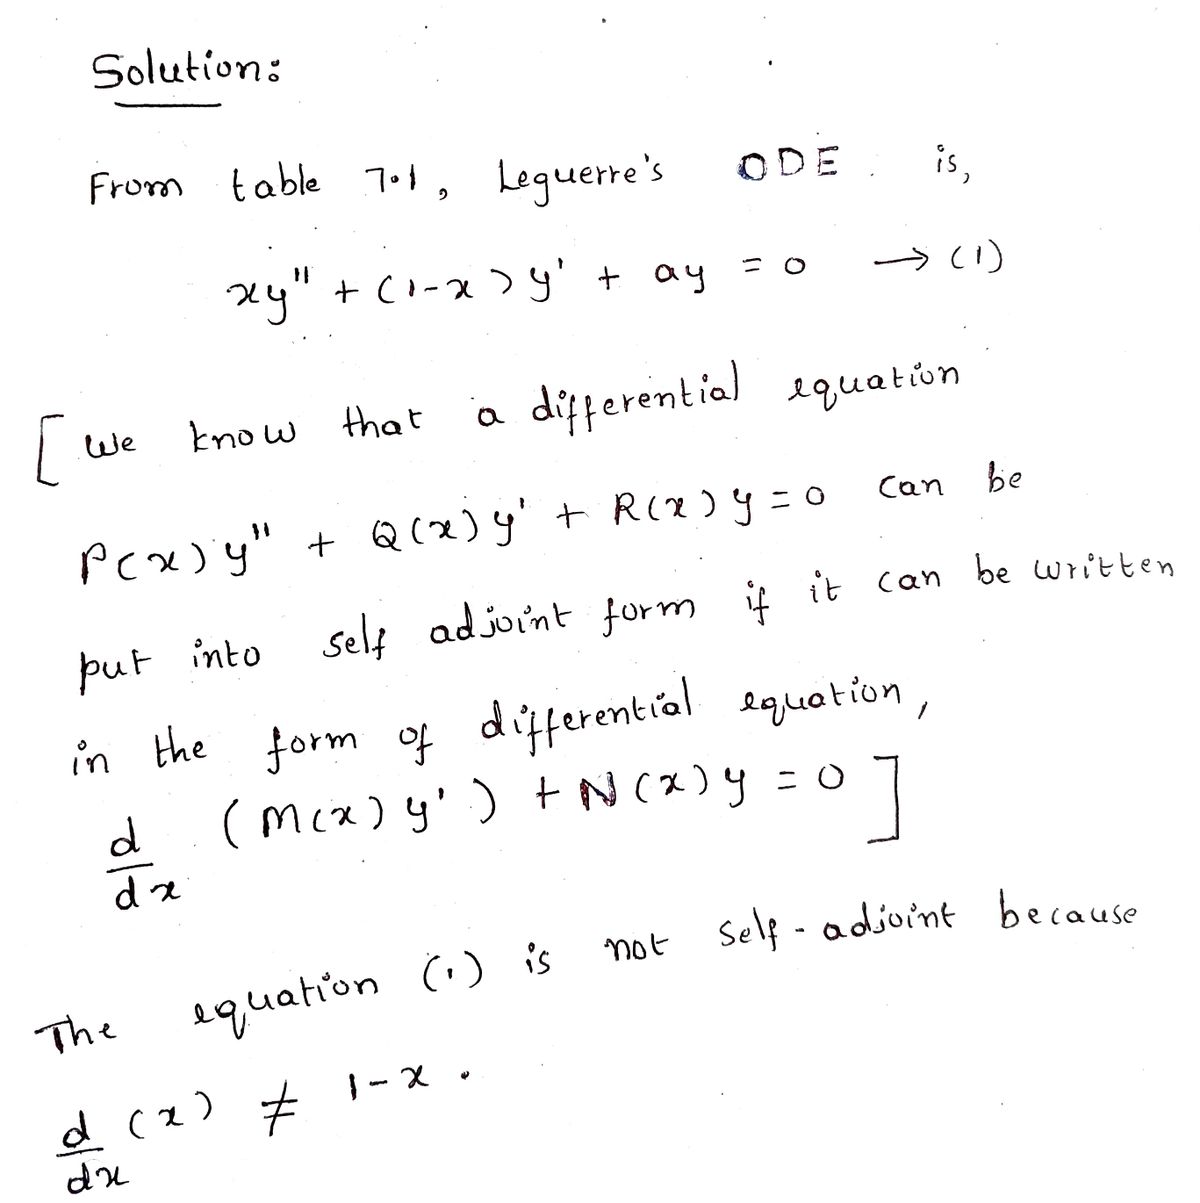 Solution:
From table 7.1, Leguerre's ODE is,
xy'' + (1-x)y' + ay = 0 → (1)
[ We know that a differential equation
P(x)y'' + Q(x)y' + R(x)y = 0 can be
put into self adjoint form if it can be written
in the form of differential equation,
d/dx (M(x)y') + N(x)y = 0 ]
The equation (1) is not self-adjoint because
d/dx (x) ≠ 1-x.